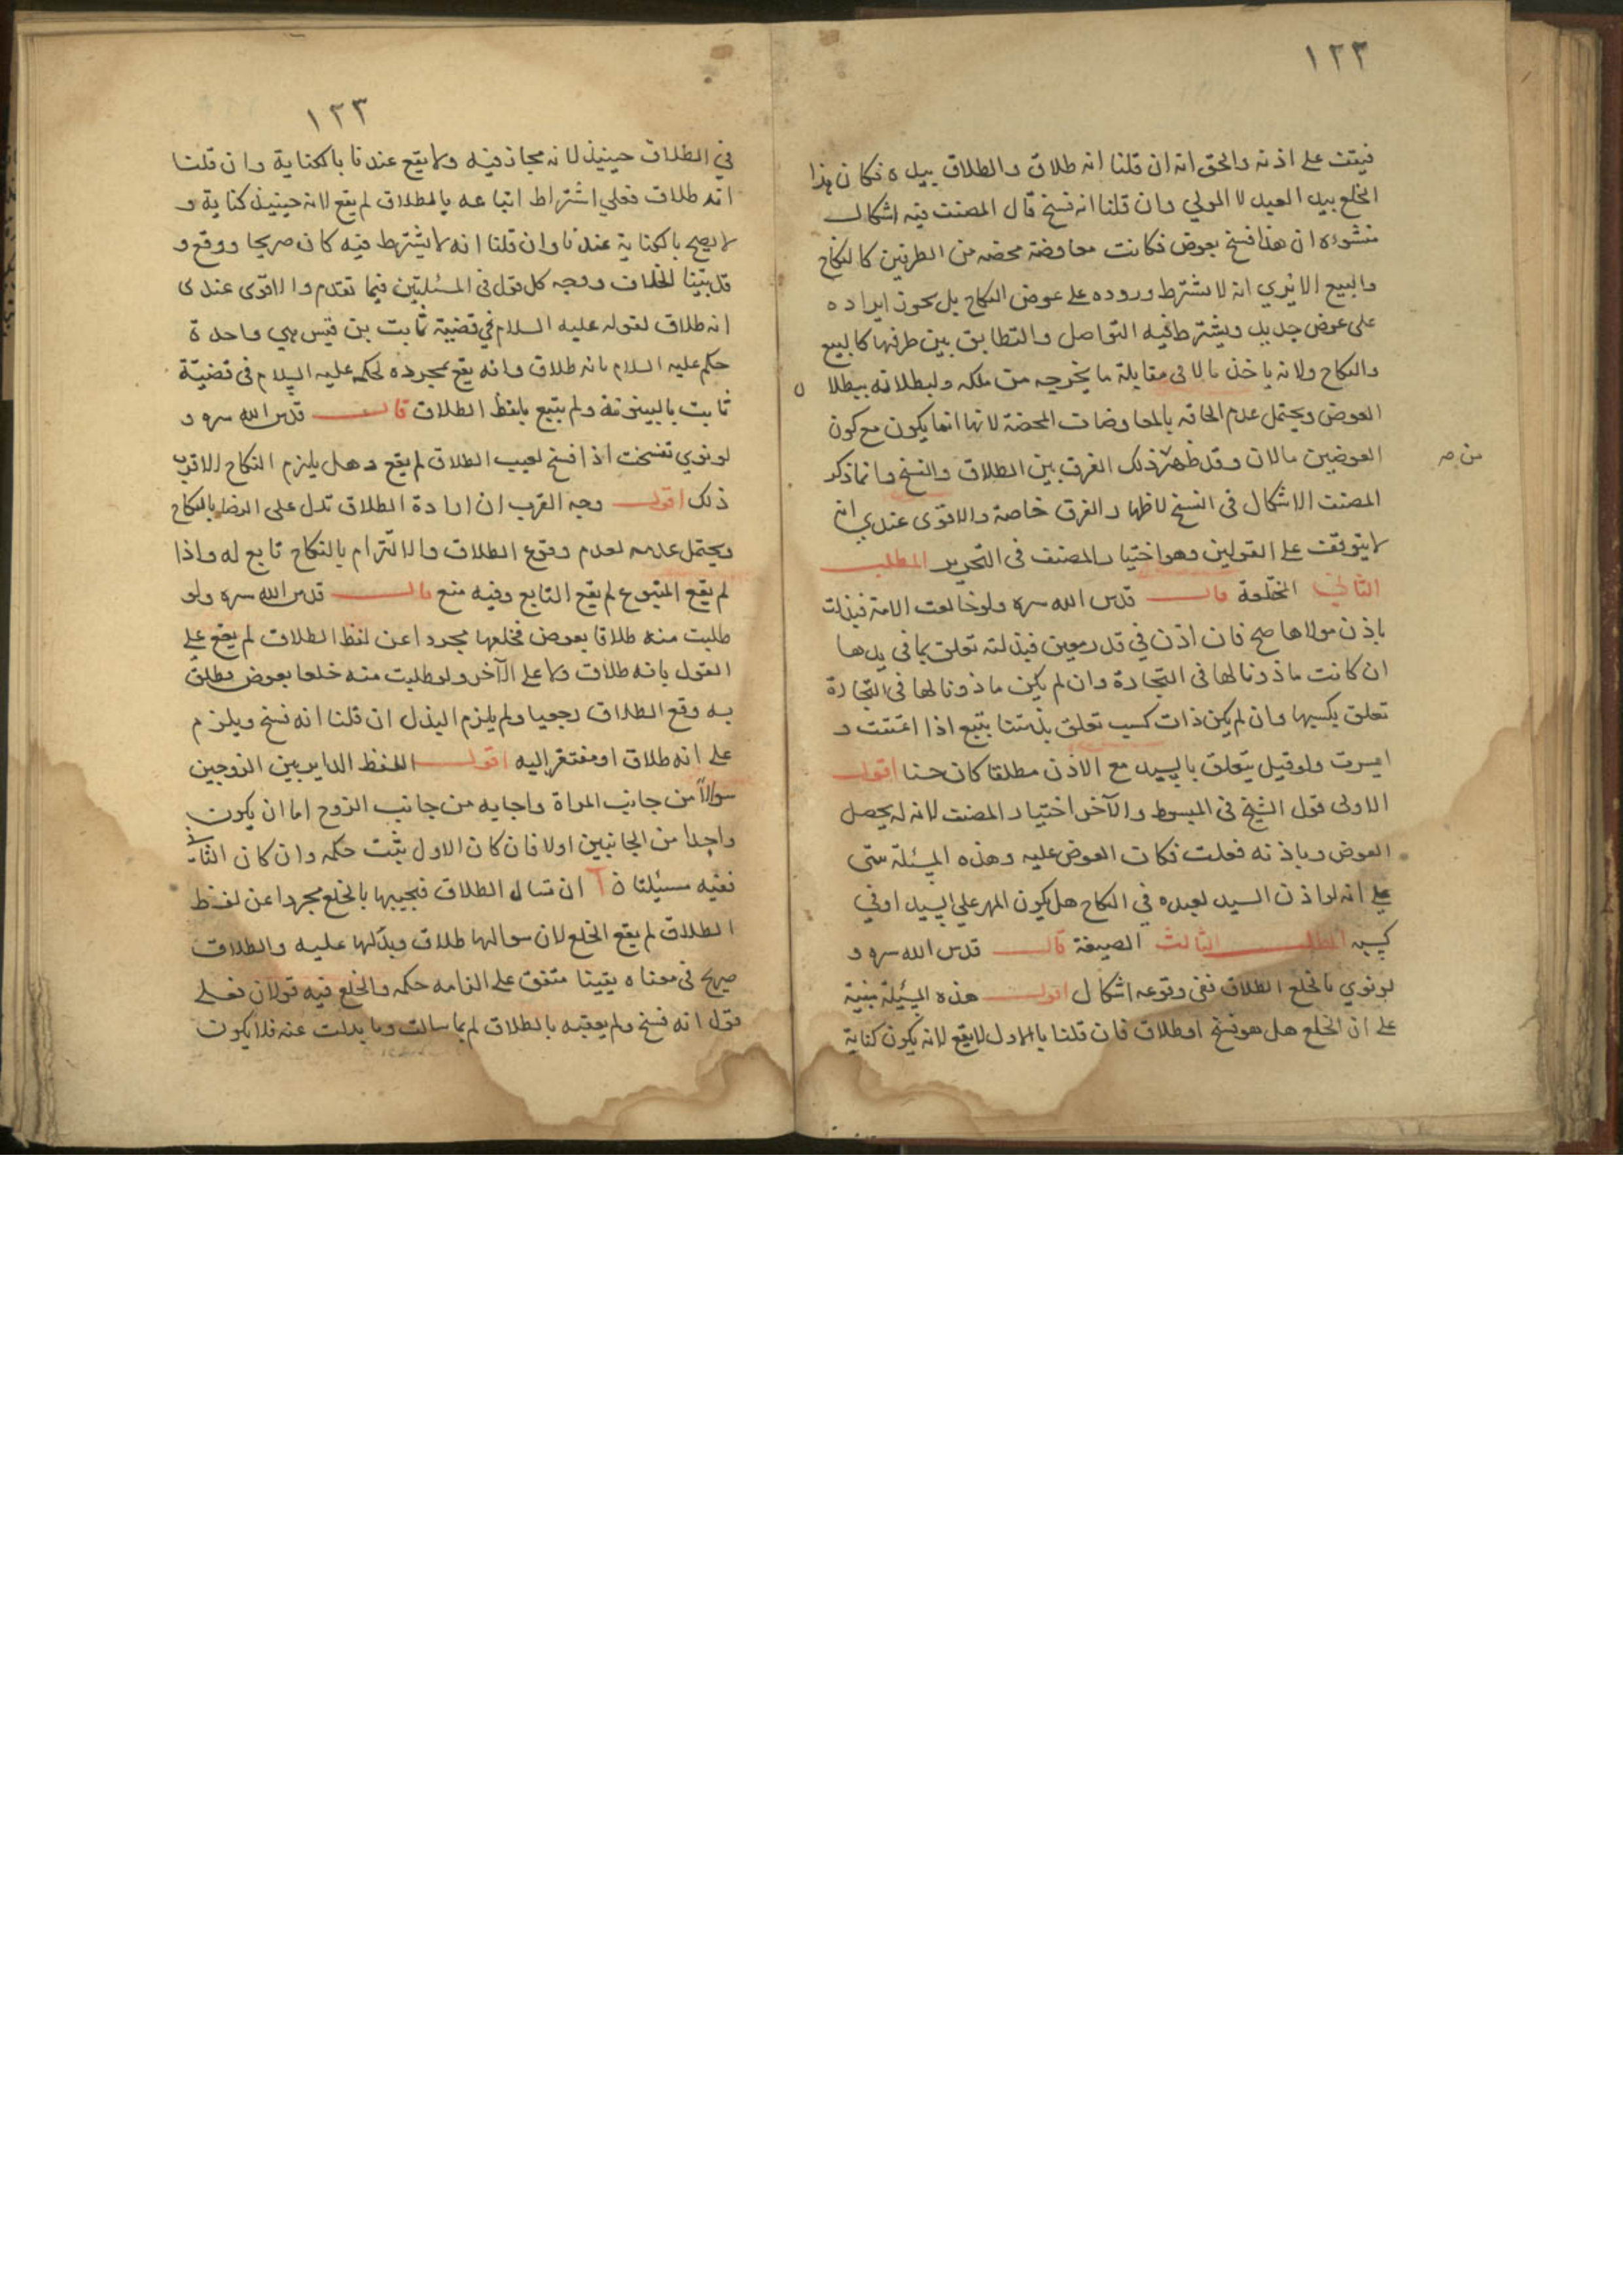 ١٢٢
فيقف على اذنه والحق انه ان قلنا انه طلاق والطلاق بيده فكان هذا
الخلع بيد العبد لا المولي وان قلنا انه فسخ قال المصنف فيه اشكال
منشؤه ان هذا فسخ بعوض فكانت معاوضة محضه من الطرفين كالنكاح
والبيع الا ترى انه لا يشترط وروده على عوض النكاح بل يجوز ايراده
على عوض جديد ويشترط فيه التواصل والتطابق بين طرفيها كالبيع
والنكاح ولانه ياخذ مالا في مقابلة ما يخرجه من ملكه ولبطلانه ببطلان
العوض ويحتمل عدم الحاقه بالمعاوضات المحضة لانها انما يكون مع كون
العوضين مالان وقد ظهر من ذلك الفرق بين الطلاق والفسخ وانما ذكر
من صر
المصنف الاشكال في الفسخ لاظهار الفرق خاصة والاقوى عندي انه
لا يتوقف على القولين وهو اختيار المصنف في التحرير المطلب
الثاني المختلعة قال قدس الله سره ولو خالعت الامة فبذلت
باذن مولاها صح فان اذن في قدر معين فبذلته تعلق بما في يدها
ان كانت ماذونا لها في التجارة وان لم يكن ماذونا لها في التجارة
تعلق بكسبها وان لم يكن ذات كسب تعلق بذمتها يتبع اذا اعتقت و
ايسرت ولو قيل يتعلق بالسيد مع الاذن مطلقا كان حسنا اقول
الاولى قول الشيخ في المبسوط والآخر اختيار المصنف لانه له يحصل
العوض وباذنه فعلت فكان العوض عليه وهذه المسئلة مبنى
على انه لو اذن السيد لعبده في النكاح هل يكون المهر على السيد او في
كسبه المطلب الثالث الصيغة قال قدس الله سره و
لو نوي بالخلع الطلاق ففي وقوعه اشكال اقول هذه المسئلة مبنية
على ان الخلع هل هو فسخ او طلاق فان قلنا بالاول لا يقع لانه يكون كناية
١٢٣
في الطلاق حينيذ لانه مجاز فيه ولا يقع عندنا بالكناية وان قلنا
انه طلاق فعلى اشتراط اتباعه بالطلاق لم يقع لانه حينيذ كناية و
لا يصح بالكناية عندنا وان قلنا انه لا يشترط فيه كان صريحا ووقع و
قد بيّنا الخلاف ووجه كل قول في المسئلتين فيما تقدم والاقوى عندى
انه طلاق لقوله عليه السلام في قضية ثابت بن قيس هي واحدة
حكم عليه السلام بانه طلاق وانه يقع بمجرده لحكمه عليه السلام في قضيّة
ثابت بالبينونة ولم يتبع بلفظ الطلاق قال قدس الله سره و
لو نوي تفسخت اذا فسخ لعيب الطلاق لم يقع وهل يلزم النكاح الاقرب
ذلك اقول وجه القرب ان ارادة الطلاق تدل على الرضا بالنكاح
ويحتمل عدمه لعدم وقوع الطلاق والالتزام بالنكاح تابع له واذا
لم يقع المتبوع لم يقع التابع وفيه منع قال قدس الله سره ولو
طلبت منه طلاقا بعوض فخلعها مجردا عن لفظ الطلاق لم يقع على
القول بانه طلاق ولا على الآخر ولو طلبت منه خلعا بعوض فطلق
به وقع الطلاق رجعيا ولم يلزم البذل ان قلنا انه فسخ ويلزم
على انه طلاق او مفتقر اليه اقول اللفظ الداير بين الزوجين
سوالاً من جانب المراة واجابه من جانب الزوج اما ان يكون
واحدا من الجانبين اولا فان كان الاول يثبت حكمه وان كان الثاني
ففيه مسئلتان آ ان تسال الطلاق فيجيبها بالخلع مجردا عن لفظ
الطلاق لم يقع الخلع لان سوالها طلاق وبذلها عليه والطلاق
صريح في معناه يقينا متفق على الزامه حكمه والخلع فيه قولان فعلى
قول انه فسخ ولم يعقبه بالطلاق لم ياسالت وما بذلت عنه فلا يكون